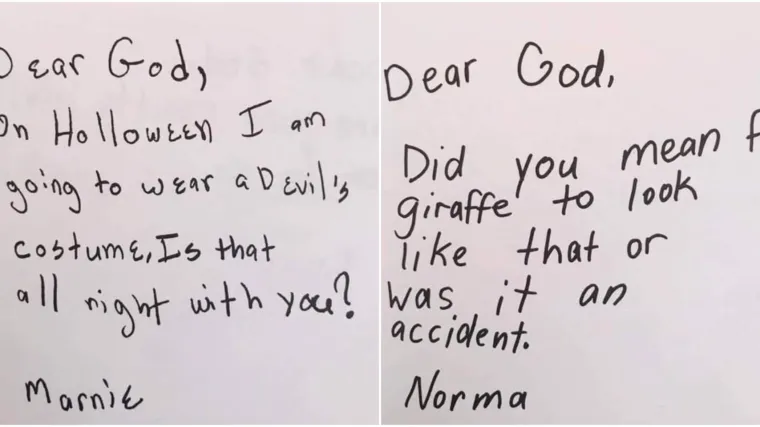 Dear God,
On Holloween I am
going to wear a Devil's
costume, Is that
all right with you?
Marnie
Dear God,
Did you mean
giraffe to look
like that or
was it an
accident.
Norma